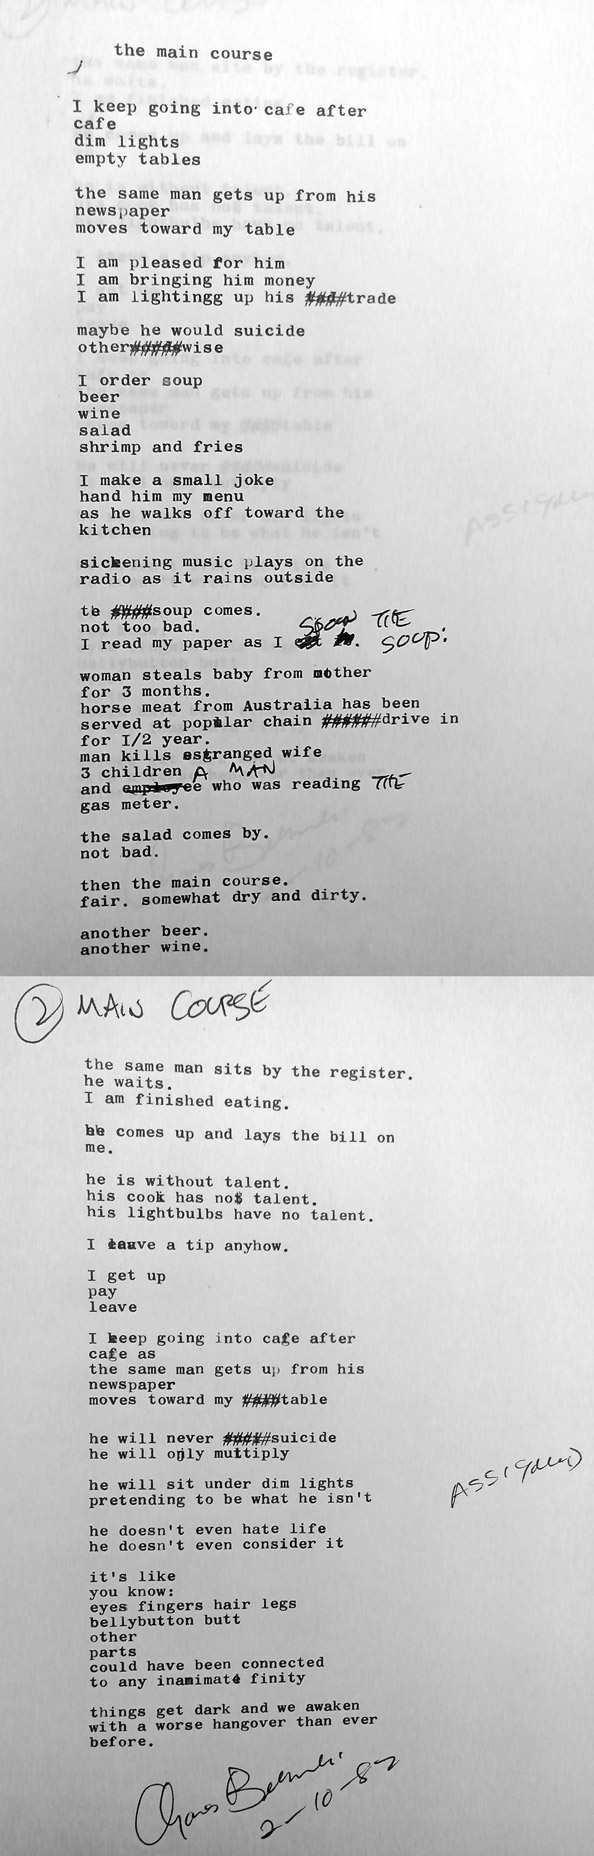 the main course
I keep going into cafe after
cafe
dim lights
empty tables
the same man gets up from his
newspaper
moves toward my table
I am pleased for him
I am bringing him money
I am lightingg up his ####trade
maybe he would suicide
other#####wise
I order soup
beer
wine
salad
shrimp and fries
I make a small joke
hand him my menu
as he walks off toward the
kitchen
sickening music plays on the
radio as it rains outside
the ####soup comes.
not too bad.
I read my paper as I SPOON THE SOUP:
woman steals baby from mother
for 3 months.
horse meat from Australia has been
served at popular chain ######drive in
for I/2 year.
man kills estranged wife
3 children
and A MAN who was reading THE
gas meter.
the salad comes by.
not bad.
then the main course.
fair. somewhat dry and dirty.
another beer.
another wine.
2) MAIN COURSE
the same man sits by the register.
he waits.
I am finished eating.
he comes up and lays the bill on
me.
he is without talent.
his cook has no talent.
his lightbulbs have no talent.
I leave a tip anyhow.
I get up
pay
leave
I keep going into cafe after
cafe as
the same man gets up from his
newspaper
moves toward my ####table
he will never #####suicide
he will only multiply
he will sit under dim lights
pretending to be what he isn't
ASSIGNED
he doesn't even hate life
he doesn't even consider it
it's like
you know:
eyes fingers hair legs
bellybutton butt
other
parts
could have been connected
to any inanimate finity
things get dark and we awaken
with a worse hangover than ever
before.
2-10-82